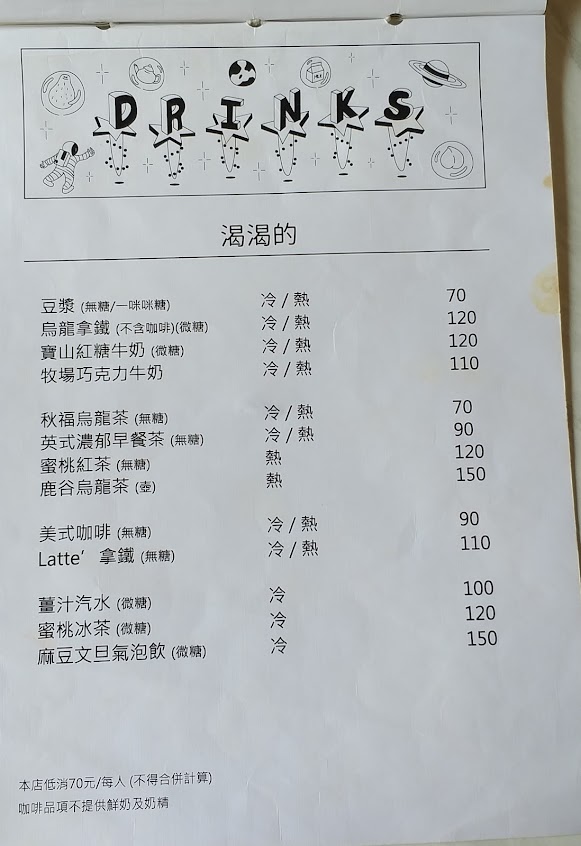 DRINKS
渴渴的
豆漿 (無糖/一咪咪糖) 冷 / 熱 70
烏龍拿鐵 (不含咖啡)(微糖) 冷 / 熱 120
寶山紅糖牛奶 (微糖) 冷 / 熱 120
牧場巧克力牛奶 冷 / 熱 110
秋福烏龍茶 (無糖) 冷 / 熱 70
英式濃郁早餐茶 (無糖) 冷 / 熱 90
蜜桃紅茶 (無糖) 熱 120
鹿谷烏龍茶 (壺) 熱 150
美式咖啡 (無糖) 冷 / 熱 90
Latte’ 拿鐵 (無糖) 冷 / 熱 110
薑汁汽水 (微糖) 冷 100
蜜桃冰茶 (微糖) 冷 120
麻豆文旦氣泡飲 (微糖) 冷 150
本店低消70元/每人 (不得合併計算)
咖啡品項不提供鮮奶及奶精